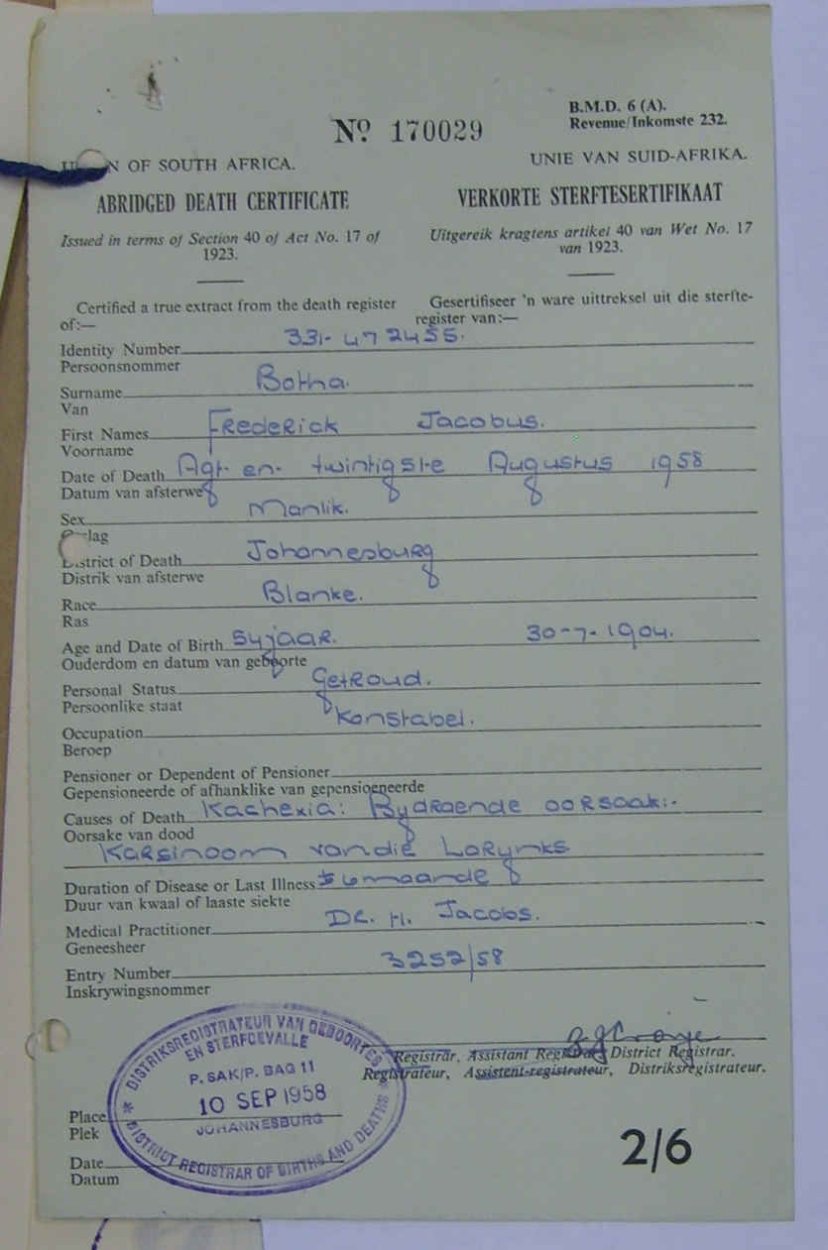 B.M.D. 6 (A).
Revenue/Inkomste 232.
Nº 170029
OF SOUTH AFRICA.
UNIE VAN SUID-AFRIKA.
ABRIDGED DEATH CERTIFICATE
VERKORTE STERFTESERTIFIKAAT
Issued in terms of Section 40 of Act No. 17 of
1923.
Uitgereik kragtens artikel 40 van Wet No. 17
van 1923.
Certified a true extract from the death register
of:—
Gesertifiseer 'n ware uittreksel uit die sterfte-
register van:—
Identity Number 331-472455.
Persoonsnommer
Surname Botha.
Van
First Names Frederick Jacobus.
Voorname
Date of Death Agt-en-twintigste Augustus 1958
Datum van afsterwe
Sex Manlik.
District of Death Johannesburg
Distrik van afsterwe
Race Blanke.
Ras
Age and Date of Birth 54 jaar. 30-7-1904.
Ouderdom en datum van geboorte
Personal Status Getroud.
Persoonlike staat
Occupation Konstabel.
Beroep
Pensioner or Dependent of Pensioner
Gepensioneerde of afhanklike van gepensioeneerde
Causes of Death Kachexia: Bydraende oorsaak:-
Oorsake van dood
Karsinoom van die Larynks
Duration of Disease or Last Illness ± 6 maande
Duur van kwaal of laaste siekte
Medical Practitioner Dr. H. Jacobs.
Geneesheer
Entry Number 3252/58
Inskrywingsnommer
Registrar, Assistant Registrar, District Registrar.
Registrateur, Assistent-registrateur, Distriksregistrateur.
DISTRIKSREGISTRATEUR VAN GEBOORTES
EN STERFGEVALLE
P. SAK/P. BAG 11
10 SEP 1958
JOHANNESBURG
DISTRICT REGISTRAR OF BIRTHS AND DEATHS
Place
Plek
Date
Datum
2/6